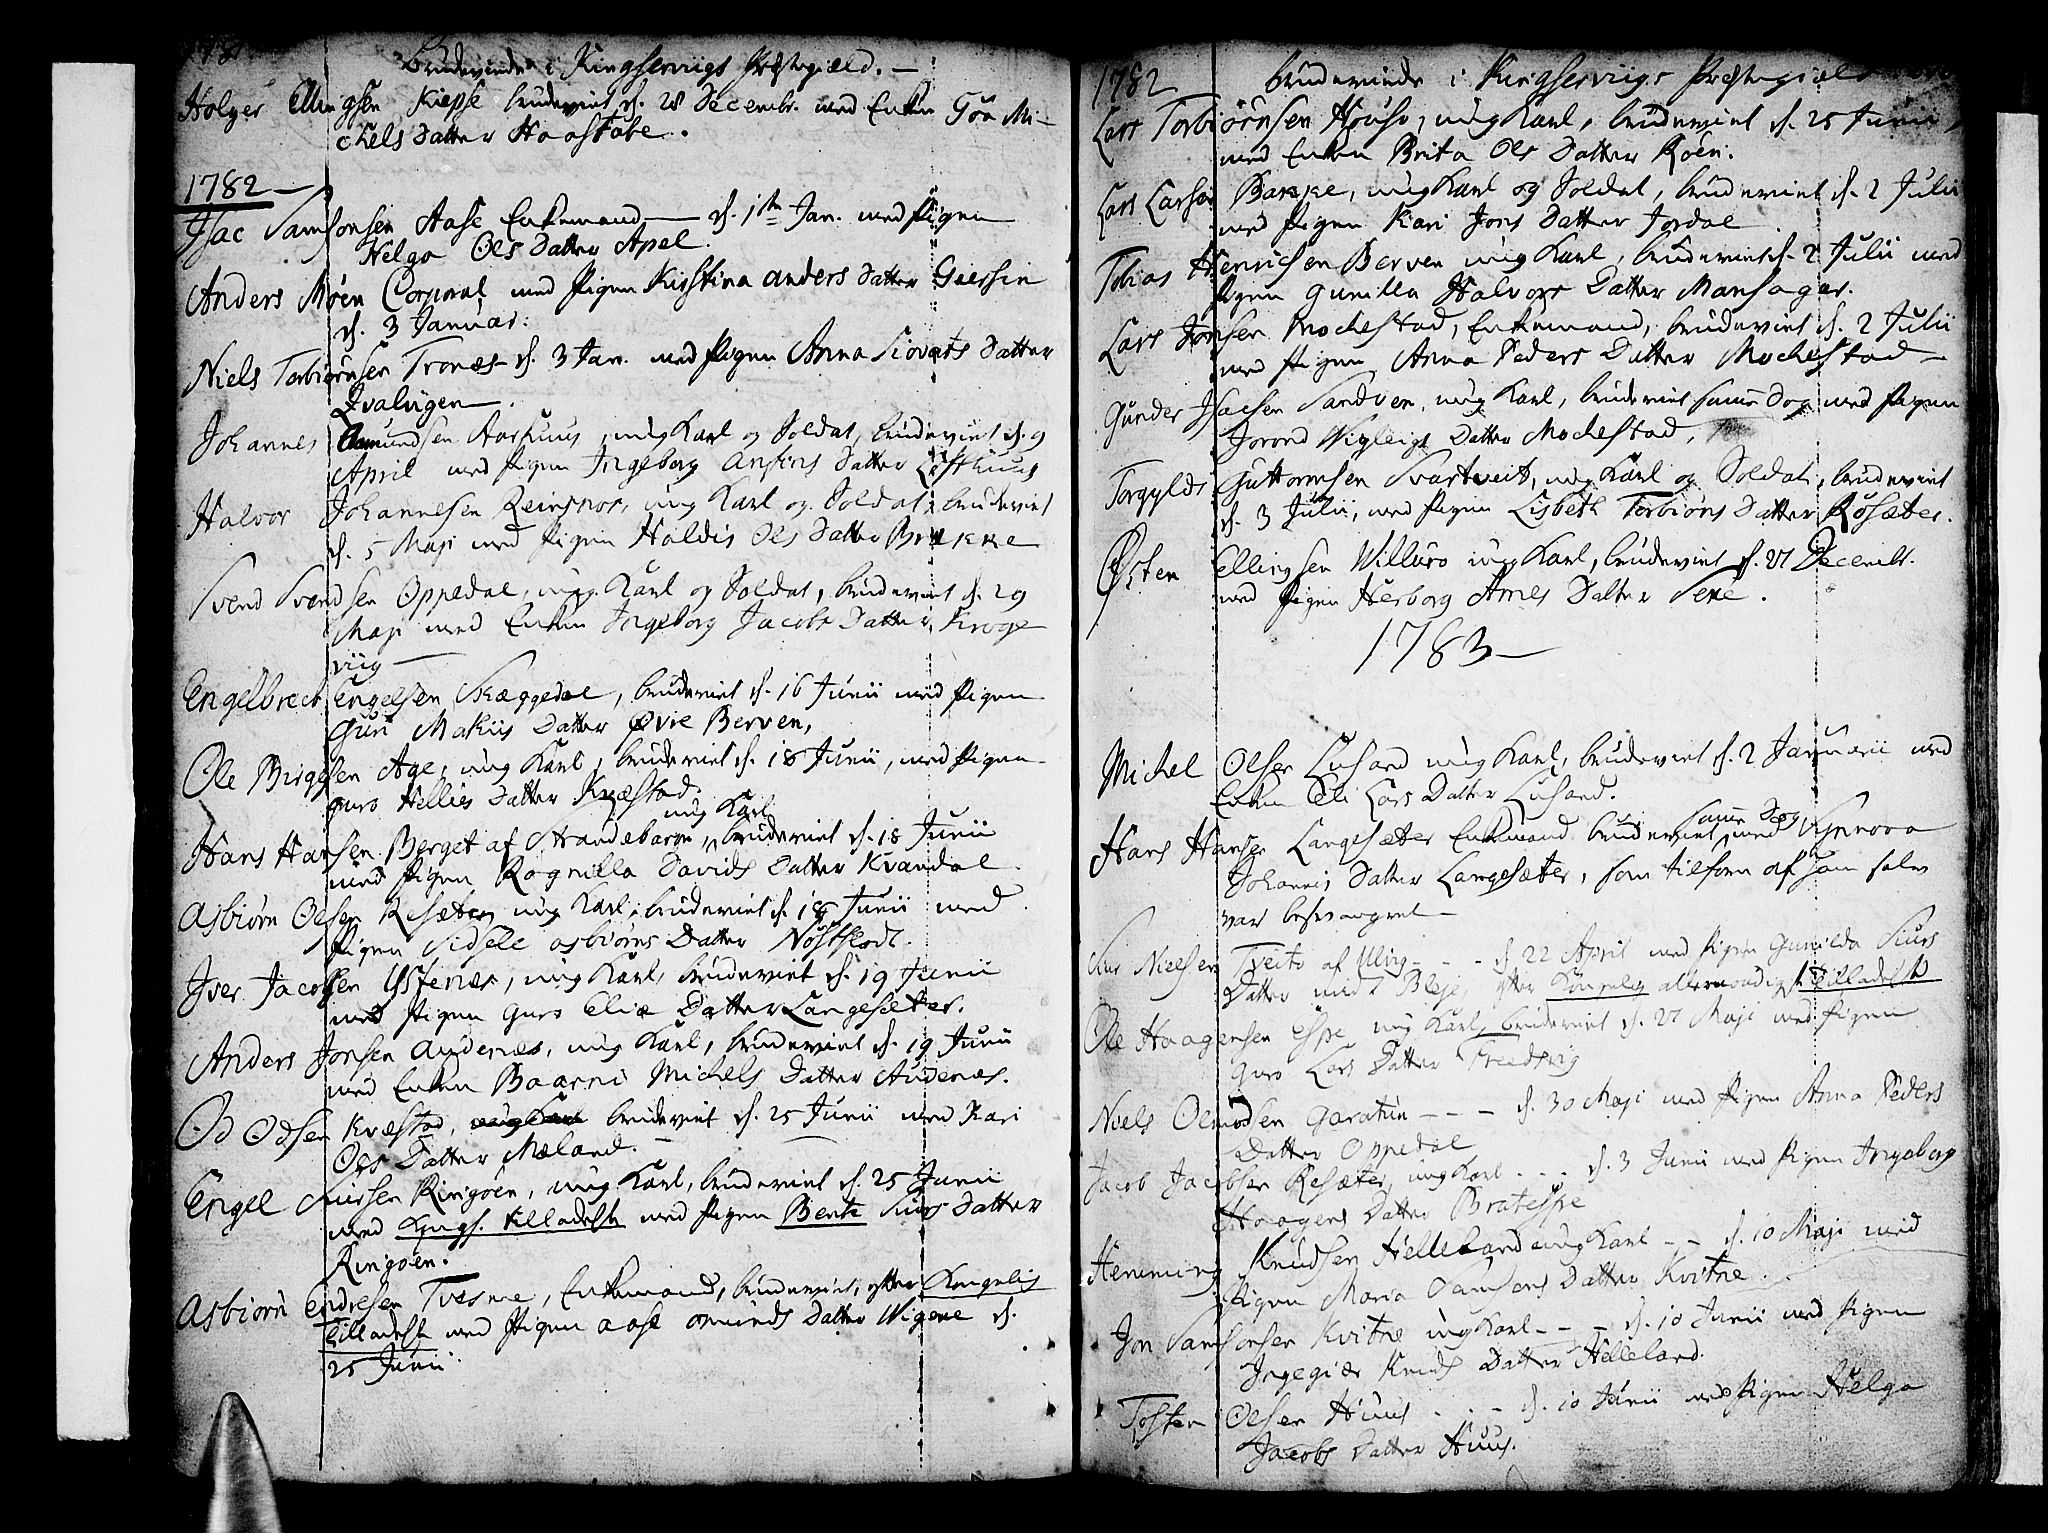 1781
Brudeviede i Kingserviigs Præstegiæld. —
Holger Ellingsen Kiepse brudeviet d. 28 Decembr. med Enken Gøa Mi-
chels Datter Haastabe.
1782 —
Isac Samsonsen Aase Enkemand — d. 1ste Jan. med Pigen
Helga Ols Datter Apel.
Anders Moen Corporal, med Pigen Kirstina Anders Datter
d. 3 Januar:
Niels Torbiørnsen Tronæs d. 3 Jan. med Pigen Anna Siovats Datter

Johannes Aamundsen Aarhuus, ung Karl og Soldat, brudeviet d. 9
April med Pigen Ingeborg Ansins Datter Lofthuus
Halvor Johannesen Reinsnos, ung Karl og Soldat, brudeviet
d. 5 Maji med Pigen Haldis Ols Datter Brekke
Svend Svendsen Oppedal, ung Karl og Soldat, brudeviet d. 29
Maji med Enken Ingeborg Jacobs Datter Kroge
viig —
Engelbrect Engelsen Skæggedal, brudeviet d. 16 Junii med Pigen
Guri Makiis Datter Øvre Berven,
Ole Brigtsen Age, ung Karl, brudeviet d. 18 Junii, med Pigen
Guro Hellies Datter Kvæstad.
ung Karl
Hans Hansen Berget af Strandebarm, brudeviet d. 18 Junii
med Pigen Ragnilla Davids Datter Kvandal
Asbiørn Olsen Resæter, ung Karl, brudeviet d. 18 Junii med
Pigen Sidsele Asbiørns Datter Nøstflodt.
Iver Jacobsen Ystenæs, ung Karl, brudeviet d. 19 Junii
med Pigen Guro Eliæ Datter Langesæter.
Anders Jonsen Audenæs, ung Karl, brudeviet d. 19 Junii
med Enken Baarni Michels Datter Audenæs.
Od Odsen Kvæstad, ung Karl brudeviet d. 25 Junii med Kari
Ols Datter Mæland.
Engel Siursen Ringøen, ung Karl, brudeviet d. 25 Junii
med Kongl. tilladelse med Pigen Bente Siurs Datter
Ringøen.
Asbiørn Endresen Tvesme, Enkemand, brudeviet, efter Kongelig
Tilladelse med Pigen Aase Omunds Datter Wigene d.
25 Junii.
1782 Brudeviede i Kingserviigs Præstegiæld
Lars Torbiørnsen House, ung Karl, brudeviet d. 25 Junii,
med Enken Brita Ols Datter Røen.
Lars Larsen Bakke, ung Karl og Soldat, brudeviet d. 2 Julii
med Pigen Kari Jons Datter Jordal
Tobias Henrichsen Berven ung Karl, brudeviet d. 2 Julii med
Pigen Gunilla Halvors Datter Mansager.
Lars Jonsen Mochestad, Enkemand, brudeviet d. 2 Julii
med Pigen Anna Peders Datter Mochestad —
Gunder Isacsen Sandven, ung Karl, brudeviet samme Dag med Pigen
Jorond Wigleigs Datter Mochestad,
Torgylds Guttormsen Svartveit, ung Karl og Soldat, brudeviet
d. 3 Julii, med Pigen Lisbeth Torbiørns Datter Rosæter.
Østen Ellingsen Willuro ung Karl, brudeviet d. 27 Decembr.
med Pigen Herborg Arnes Datter Sexe.
1783 —
Michel Olsen Lusand ung Karl, brudeviet d. 2 Januarii med
Enken Eli Lars Datter Lusand.
samme Dag
Hans Hansen Langesæter Enkemand brudeviet med Synnova
Johannis Datter Langesæter, som tilforn af ham selv
var besvangret —
Siur Nielsen Tveito af Ulvig - - - d. 22 April med Pigen Gunilda Siurs
Datter Bleje, efter Kongelig allernaadigst Tilladelse
Ole Haagensen Espe ung Karl, brudeviet d. 27 Maji med Pigen
Guro Lars Datter Freedsviig
Niels Olmodsen Garatun - - - d. 30 Maji med Pigen Anna Peders
Datter Oppedal
Jacob Jacobsen Resæter, ung Karl - - - d. 3 Junii med Pigen Ingeborg
Haagens Datter Bratespe
Henning Knudsen Helleland ung Karl - - d. 10 Maji med
Pigen Maria Samsons Datter Kvitne.
Jon Samsonsen Kvitne ung Karl - - - d. 10 Junii med Pigen
Ingegiær Knuds Datter Helleland.
Tosten Olsen Huus - - - d. 10 Junii med Pigen Helga
Jacobs Datter Huus.